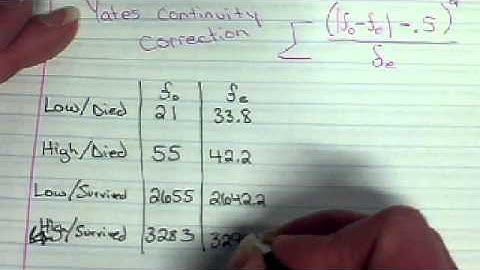 Yates Continuity
Correction
Σ (|fo-fe| - .5)²
fe
fo fe
Low/Died 21 33.8
High/Died 55 42.2
Low/Survived 2655 2642.2
High/Survived 3283